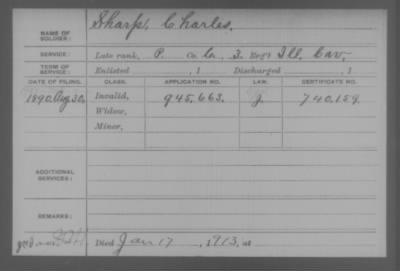 NAME OF SOLDIER: Sharp, Charles.
SERVICE: Late rank, P. Co. G., 3. Reg't Ill. Cav.
TERM OF SERVICE: Enlisted , 1 Discharged , 1
DATE OF FILING. CLASS. APPLICATION NO. LAW. CERTIFICATE NO.
1890 Aug 30. Invalid, 945.663. J. 740.159.
Widow,
Minor,
ADDITIONAL SERVICES:
REMARKS:
Died Jan 17 , 1913, at